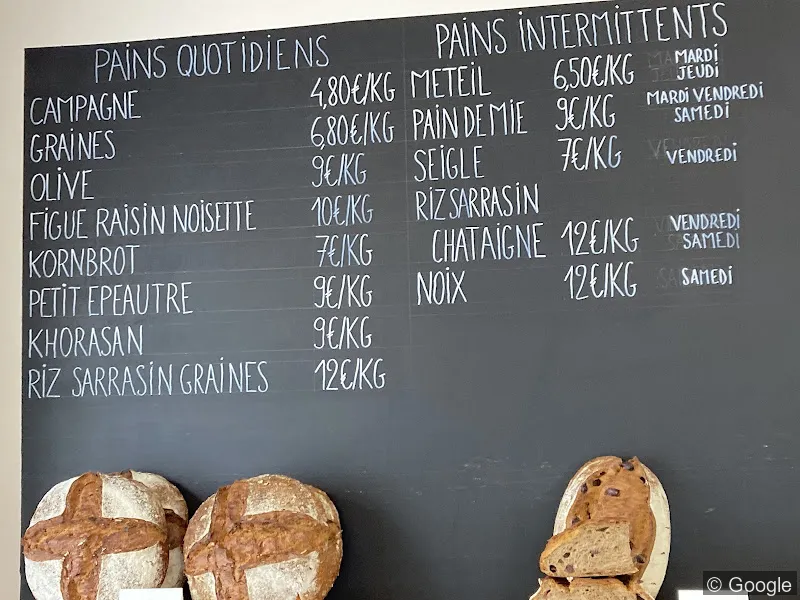 PAINS QUOTIDIENS
CAMPAGNE 4,80€/KG
GRAINES 6,80€/KG
OLIVE 9€/KG
FIGUE RAISIN NOISETTE 10€/KG
KORNBROT 7€/KG
PETIT EPEAUTRE 9€/KG
KHORASAN 9€/KG
RIZ SARRASIN GRAINES 12€/KG
PAINS INTERMITTENTS
METEIL 6,50€/KG MARDI
JEUDI
PAIN DE MIE 9€/KG MARDI VENDREDI
SAMEDI
SEIGLE 7€/KG VENDREDI
RIZ SARRASIN
CHATAIGNE 12€/KG VENDREDI
SAMEDI
NOIX 12€/KG SAMEDI
© Google